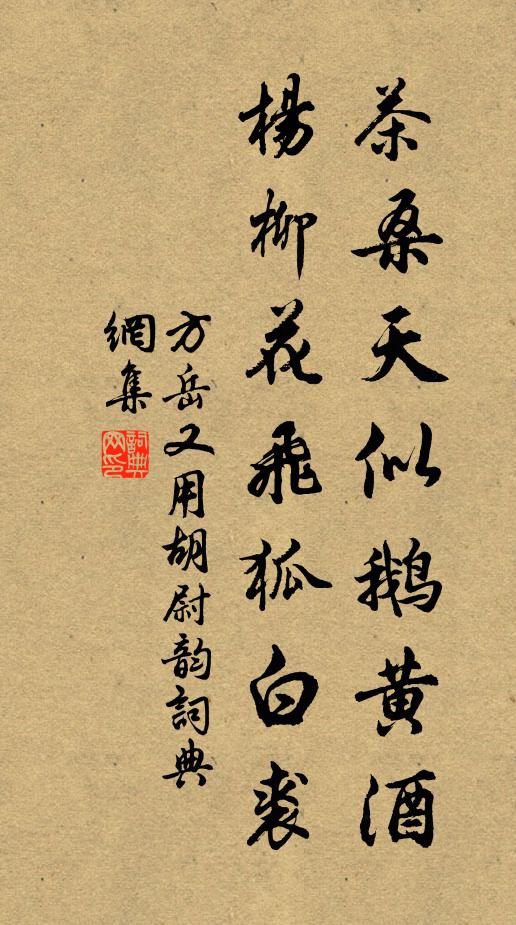 茶桑天似鹅黄酒
楊柳花飛狐白裘
方岳又用胡尉韵詞典
網集
詞典網印